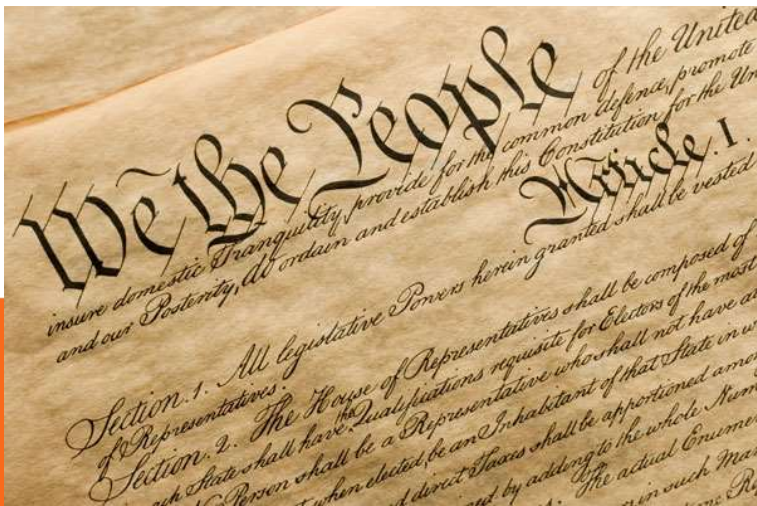 We the People of the United
insure domestic Tranquility, provide for the common defence, promote
and our Posterity, do ordain and establish this Constitution for the Un
Article. I.
Section. 1. All legislative Powers herein granted shall be vested
of Representatives.
Section. 2. The House of Representatives shall be composed of
each State shall have the Qualifications requisite for Electors of the most
Person shall be a Representative who shall not have
when elected, be an Inhabitant of that State in w
direct Taxes shall be apportioned amon
by adding to the whole Num
The actual Enumer
in such Man